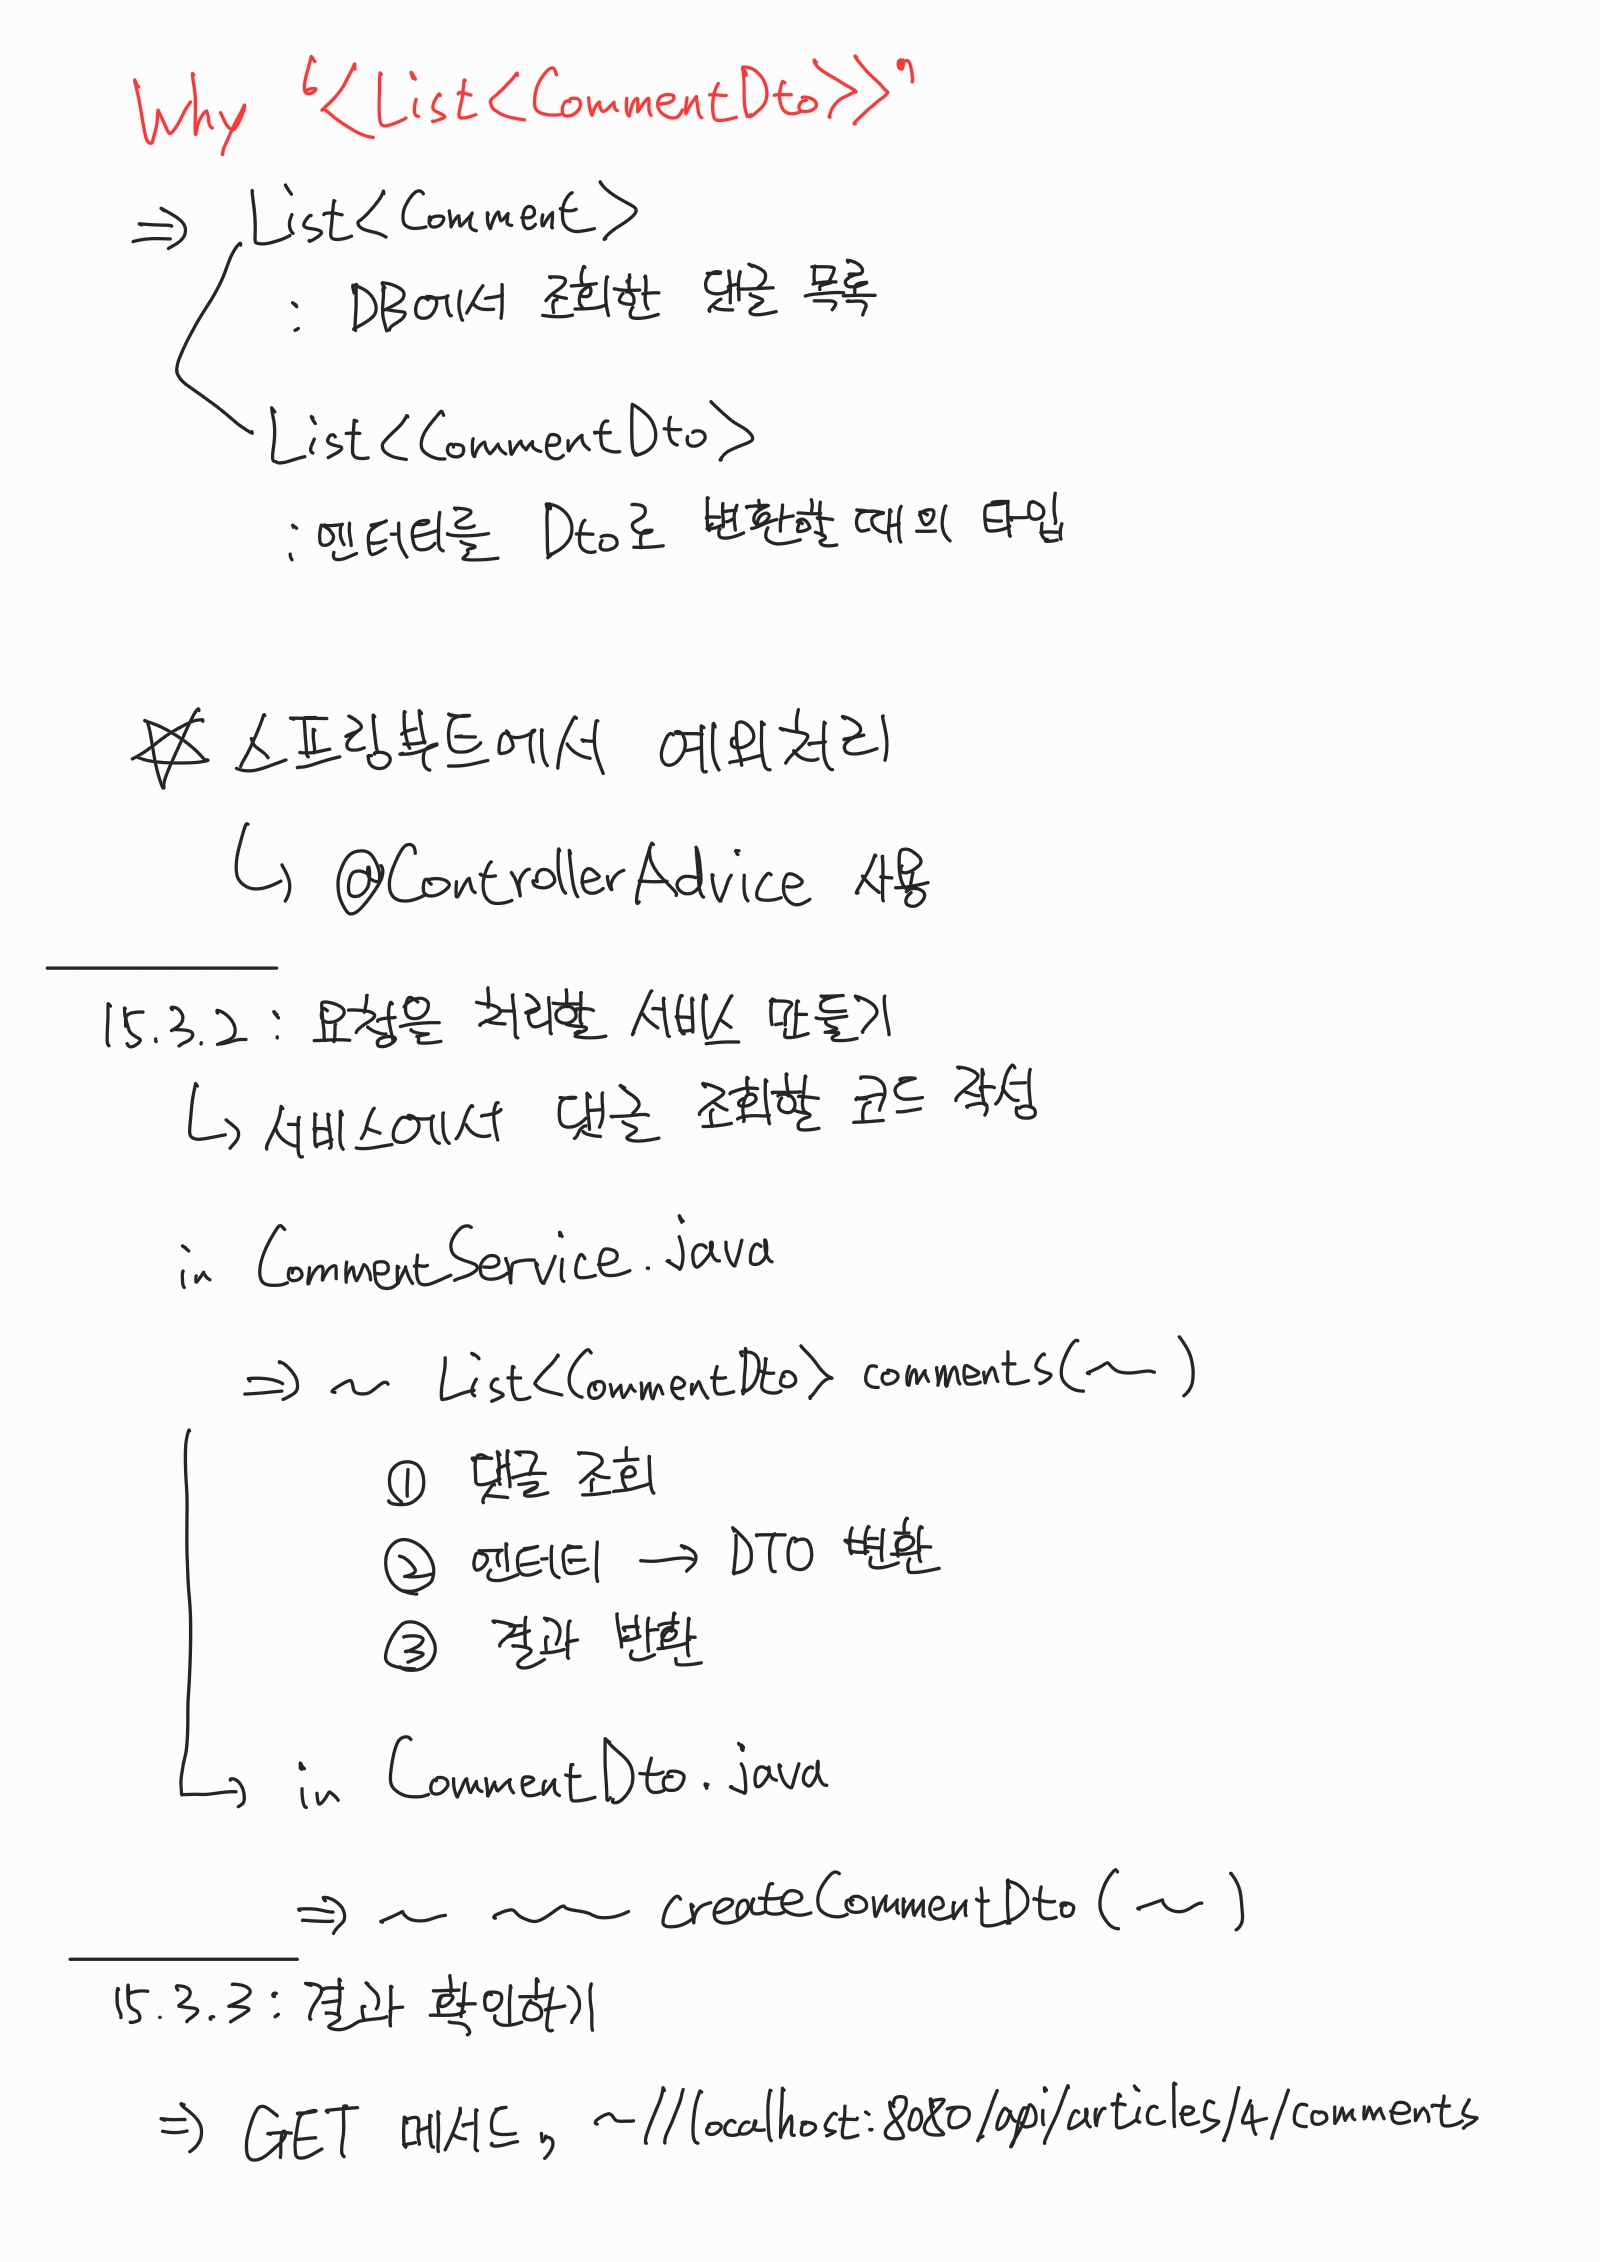 Why “<List<CommentDto>>”
⇒ List<Comment>
: DB에서 조회한 댓글 목록
List<CommentDto>
: 엔터티를 Dto로 변환할 때의 타입
☆ 스프링부트에서 예외처리
↳ @ControllerAdvice 사용
15.3.2 : 요청을 처리할 서비스 만들기
↳ 서비스에서 댓글 조회할 코드 작성
in CommentService.java
⇒ ~ List<CommentDto> comments(~)
① 댓글 조회
② 엔터티 → DTO 변환
③ 결과 반환
↳ in CommentDto.java
⇒ ~ ~~ createCommentDto(~)
15.3.3 : 결과 확인하기
⇒ GET 메서드, ~//localhost:8080/api/articles/4/comments